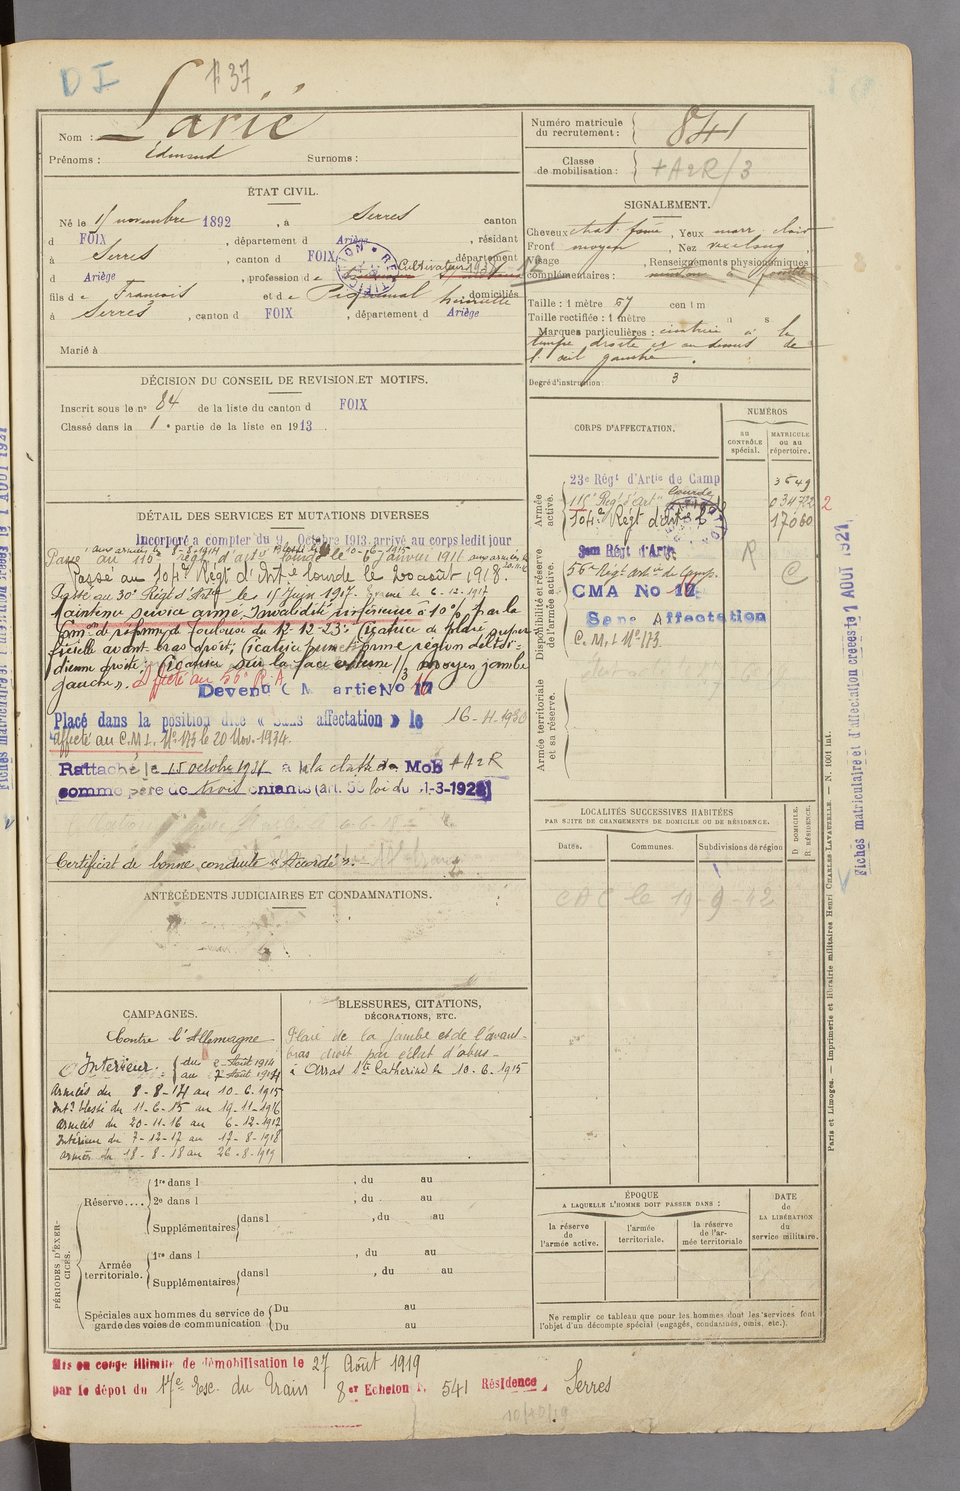 DI
137
Larié
Nom :
Prénoms : Edmond Surnoms :
Numéro matricule du recrutement : 841
Classe de mobilisation : + A2R/3
ÉTAT CIVIL.
Né le 1 novembre 1892, à Serres canton
d FOIX, département d Ariège, résidant
à Serres, canton d FOIX, département
d Ariège, profession de Cultivateur
fils de François et de Henriette, domiciliés
à Serres, canton d FOIX, département d Ariège
Marié à
SIGNALEMENT.
Cheveux chat. foncé, Yeux marr. clair
Front moyen, Nez rectiligne,
Visage, Renseignements physionomiques
complémentaires :
Taille : 1 mètre 57 centim
Taille rectifiée : 1 mètre
Marques particulières : cicatrice à la
tempe droite et au dessus de
l'œil gauche.
Degré d'instruction : 3
DÉCISION DU CONSEIL DE REVISION ET MOTIFS.
Inscrit sous le no 84 de la liste du canton d FOIX
Classé dans la 1e partie de la liste en 1913.
CORPS D'AFFECTATION.
NUMÉROS
au CONTRÔLE spécial.
MATRICULE ou au répertoire.
Armée active.
23e Régt d'Artie de Camp 3649
116e Régt d'Artie Lourde 2
104e Régt d'Artie L 17060
Disponibilité et réserve de l'armée active.
Régt d'Artie
56e Régt Artie de Camp. R C
CMA No 17
Sans Affectation
C.M.I. No 173
Armée territoriale et sa réserve.
DÉTAIL DES SERVICES ET MUTATIONS DIVERSES
Incorporé à compter du 9 Octobre 1913, arrivé au corps ledit jour
Aux armées le 8-8-1914 Blessé le 10-6-1915
Passe au 116e Régt d'artie lourde le 6 Janvier 1916 aux armées le 20.11.16
Passe au 104e Régt d'Artie Lourde le 20 août 1918.
Passe au 30e Régt d'Artie le 15 Juin 1917. Evacué le 6-12-1917
Maintenu service armé. Invalidité inférieure à 10% par la
Comon de réforme de Toulouse du 12-12-23: Cicatrice de plaie super
ficielle avant bras droit, Cicatrice punctiforme région deltoï-
dienne droite; Cicatrice sur la face externe 1/3 moyen jambe
gauche". Affecté au 56e R.A
Devenu C M artie No 17 16
Placé dans la position dite « Sans affectation » le 16-4-1930
Affecté au C.M.I. No 173 le 20 Nov. 1934.
Rattaché le 15 octobre 1938 à la classe de Mob + A2R
comme père de trois enfants (art. 58 loi du 31-3-1928)
Certificat de bonne conduite "Accordé".
LOCALITÉS SUCCESSIVES HABITÉES
PAR SUITE DE CHANGEMENTS DE DOMICILE OU DE RÉSIDENCE.
Dates. Communes. Subdivisions de région
D. DOMICILE.
R. RÉSIDENCE.
CAC le 19-9-42
ANTÉCÉDENTS JUDICIAIRES ET CONDAMNATIONS.
CAMPAGNES.
Contre l'Allemagne
Intérieur. du 2 Août 1914
au 7 Août 1914
Armées du 8-8-14 au 10-6-1915
Intr blessé du 11-6-15 au 19-11-1916
Armées du 20-11-16 au 6-12-1917
Intérieur du 7-12-17 au 17-8-1918
Armées du 18-8-18 au 26-8-1919
BLESSURES, CITATIONS,
DÉCORATIONS, ETC.
Plaie de la jambe et de l'avant-
bras droit par éclat d'obus
à Arras Ste Catherine le 10-6-1915
PÉRIODES D'EXERCICES.
Réserve....
1re dans l , du au
2e dans l , du au
Supplémentaires dans l , du au
Armée territoriale.
1re dans l , du au
Supplémentaires dans l , du au
Spéciales aux hommes du service de garde des voies de communication
Du au
Du au
ÉPOQUE
A LAQUELLE L'HOMME DOIT PASSER DANS :
la réserve de l'armée active.
l'armée territoriale.
la réserve de l'armée territoriale
DATE
DE
LA LIBÉRATION
du
service militaire.
Ne remplir ce tableau que pour les hommes dont les services font
l'objet d'un décompte spécial (engagés, condamnés, omis, etc.).
Mis en congé illimité de démobilisation le 27 Août 1919
par le dépôt du 17e Esc. du Train 8er Echelon N. 541 Résidence, Serres
10/10/19
Paris et Limoges. — Imprimerie et librairie militaires Henri CHARLES-LAVAUZELLE. — N. 1601 int.
Fiches matriculaire et d'affectation créées le 1 AOUT 1921